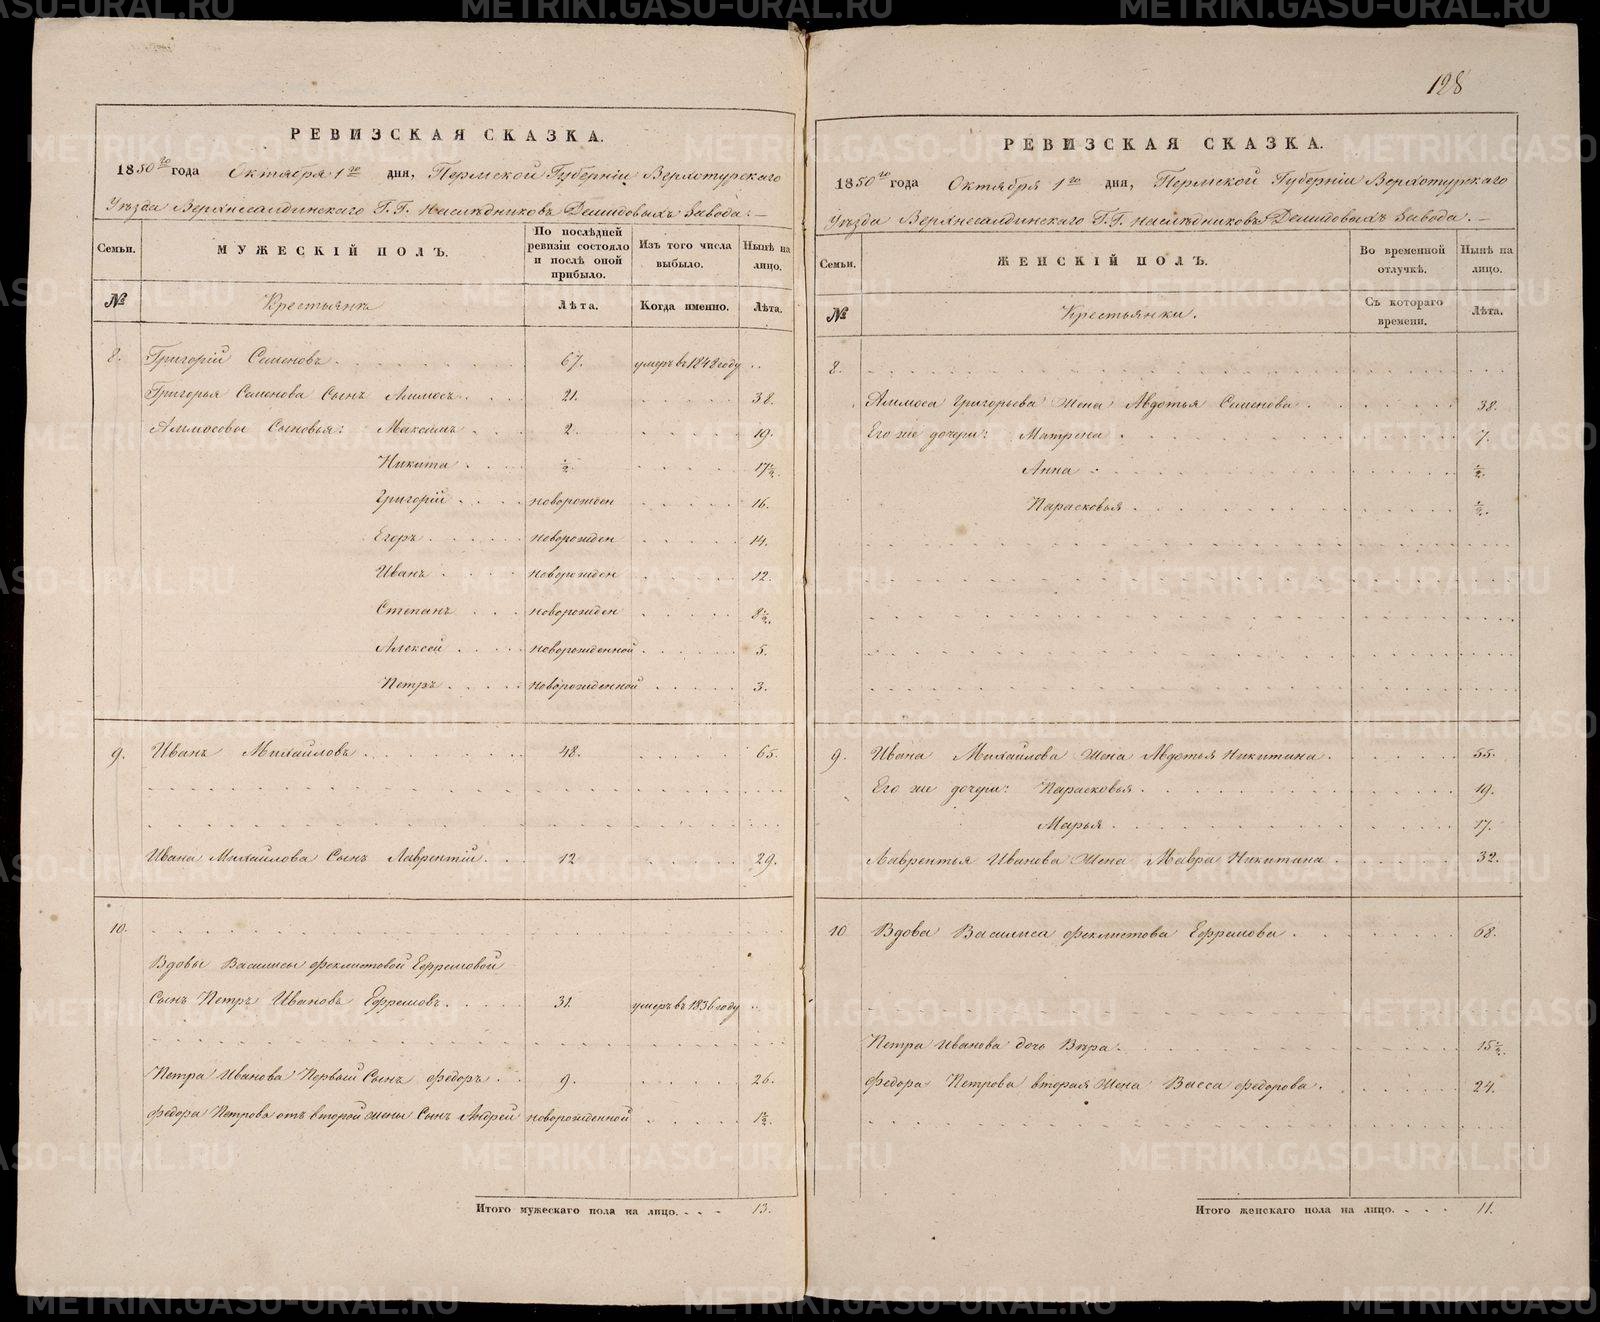 128
РЕВИЗСКАЯ СКАЗКА.
1850го года Октября 1го дня, Пермской Губерніи Верхотурскаго
Уѣзда Верхнесалдинскаго Г.Г. Наслѣдниковъ Демидовыхъ Завода:—
Семьи.
МУЖЕСКІЙ ПОЛЪ.
По послѣдней ревизіи состояло и послѣ оной прибыло.
Изъ того числа выбыло.
Нынѣ на лицо.
№
Крестьянъ
Лѣта.
Когда именно.
Лѣта.
8. Григорій Семеновъ 67. умеръ въ 1848 году
Григорья Семенова Сынъ Аммосъ 21. 38.
Аммосовы Сыновья: Максимъ 2. 19.
Никита ½. 17½.
Григорій новорожден 16.
Егоръ новорожден 14.
Иванъ новорожден 12.
Степанъ новорожден 8½.
Алексей новорожденной 5.
Петръ новорожденной 3.
9. Иванъ Михайловъ 48. 65.
Ивана Михайлова Сынъ Лаврентій 12 29.
10.
Вдовы Василисы Феклистовой Ефремовой
Сынъ Петръ Ивановъ Ефремовъ 31. умеръ въ 1836 году
Петра Иванова Первый Сынъ Федоръ 9. 26.
Федора Петрова отъ второй жены Сынъ Андрей новорожденной 1½.
Итого мужескаго пола на лицо. 13.
РЕВИЗСКАЯ СКАЗКА.
1850го года Октября 1го дня, Пермской Губерніи Верхотурскаго
Уѣзда Верхнесалдинскаго Г.Г. Наслѣдниковъ Демидовыхъ Завода.—
Семьи.
ЖЕНСКІЙ ПОЛЪ.
Во временной отлучкѣ.
Нынѣ на лицо.
№
Крестьянки.
Съ котораго времени.
Лѣта.
8.
Аммоса Григорьева Жена Авдотья Семенова 38.
Его же дочери: Матрена 7.
Анна ½.
Парасковья ½.
9. Ивана Михайлова Жена Авдотья Никитина 55.
Его же дочери: Парасковья 19.
Марья 17.
Лаврентья Иванова Жена Мавра Никитина 32.
10 Вдова Василиса Феклистова Ефремова 68.
Петра Иванова дочь Вѣра 15½.
Федора Петрова вторая Жена Васса Федорова 24.
Итого женскаго пола на лицо. 11.
METRIKI.GASO-URAL.RU